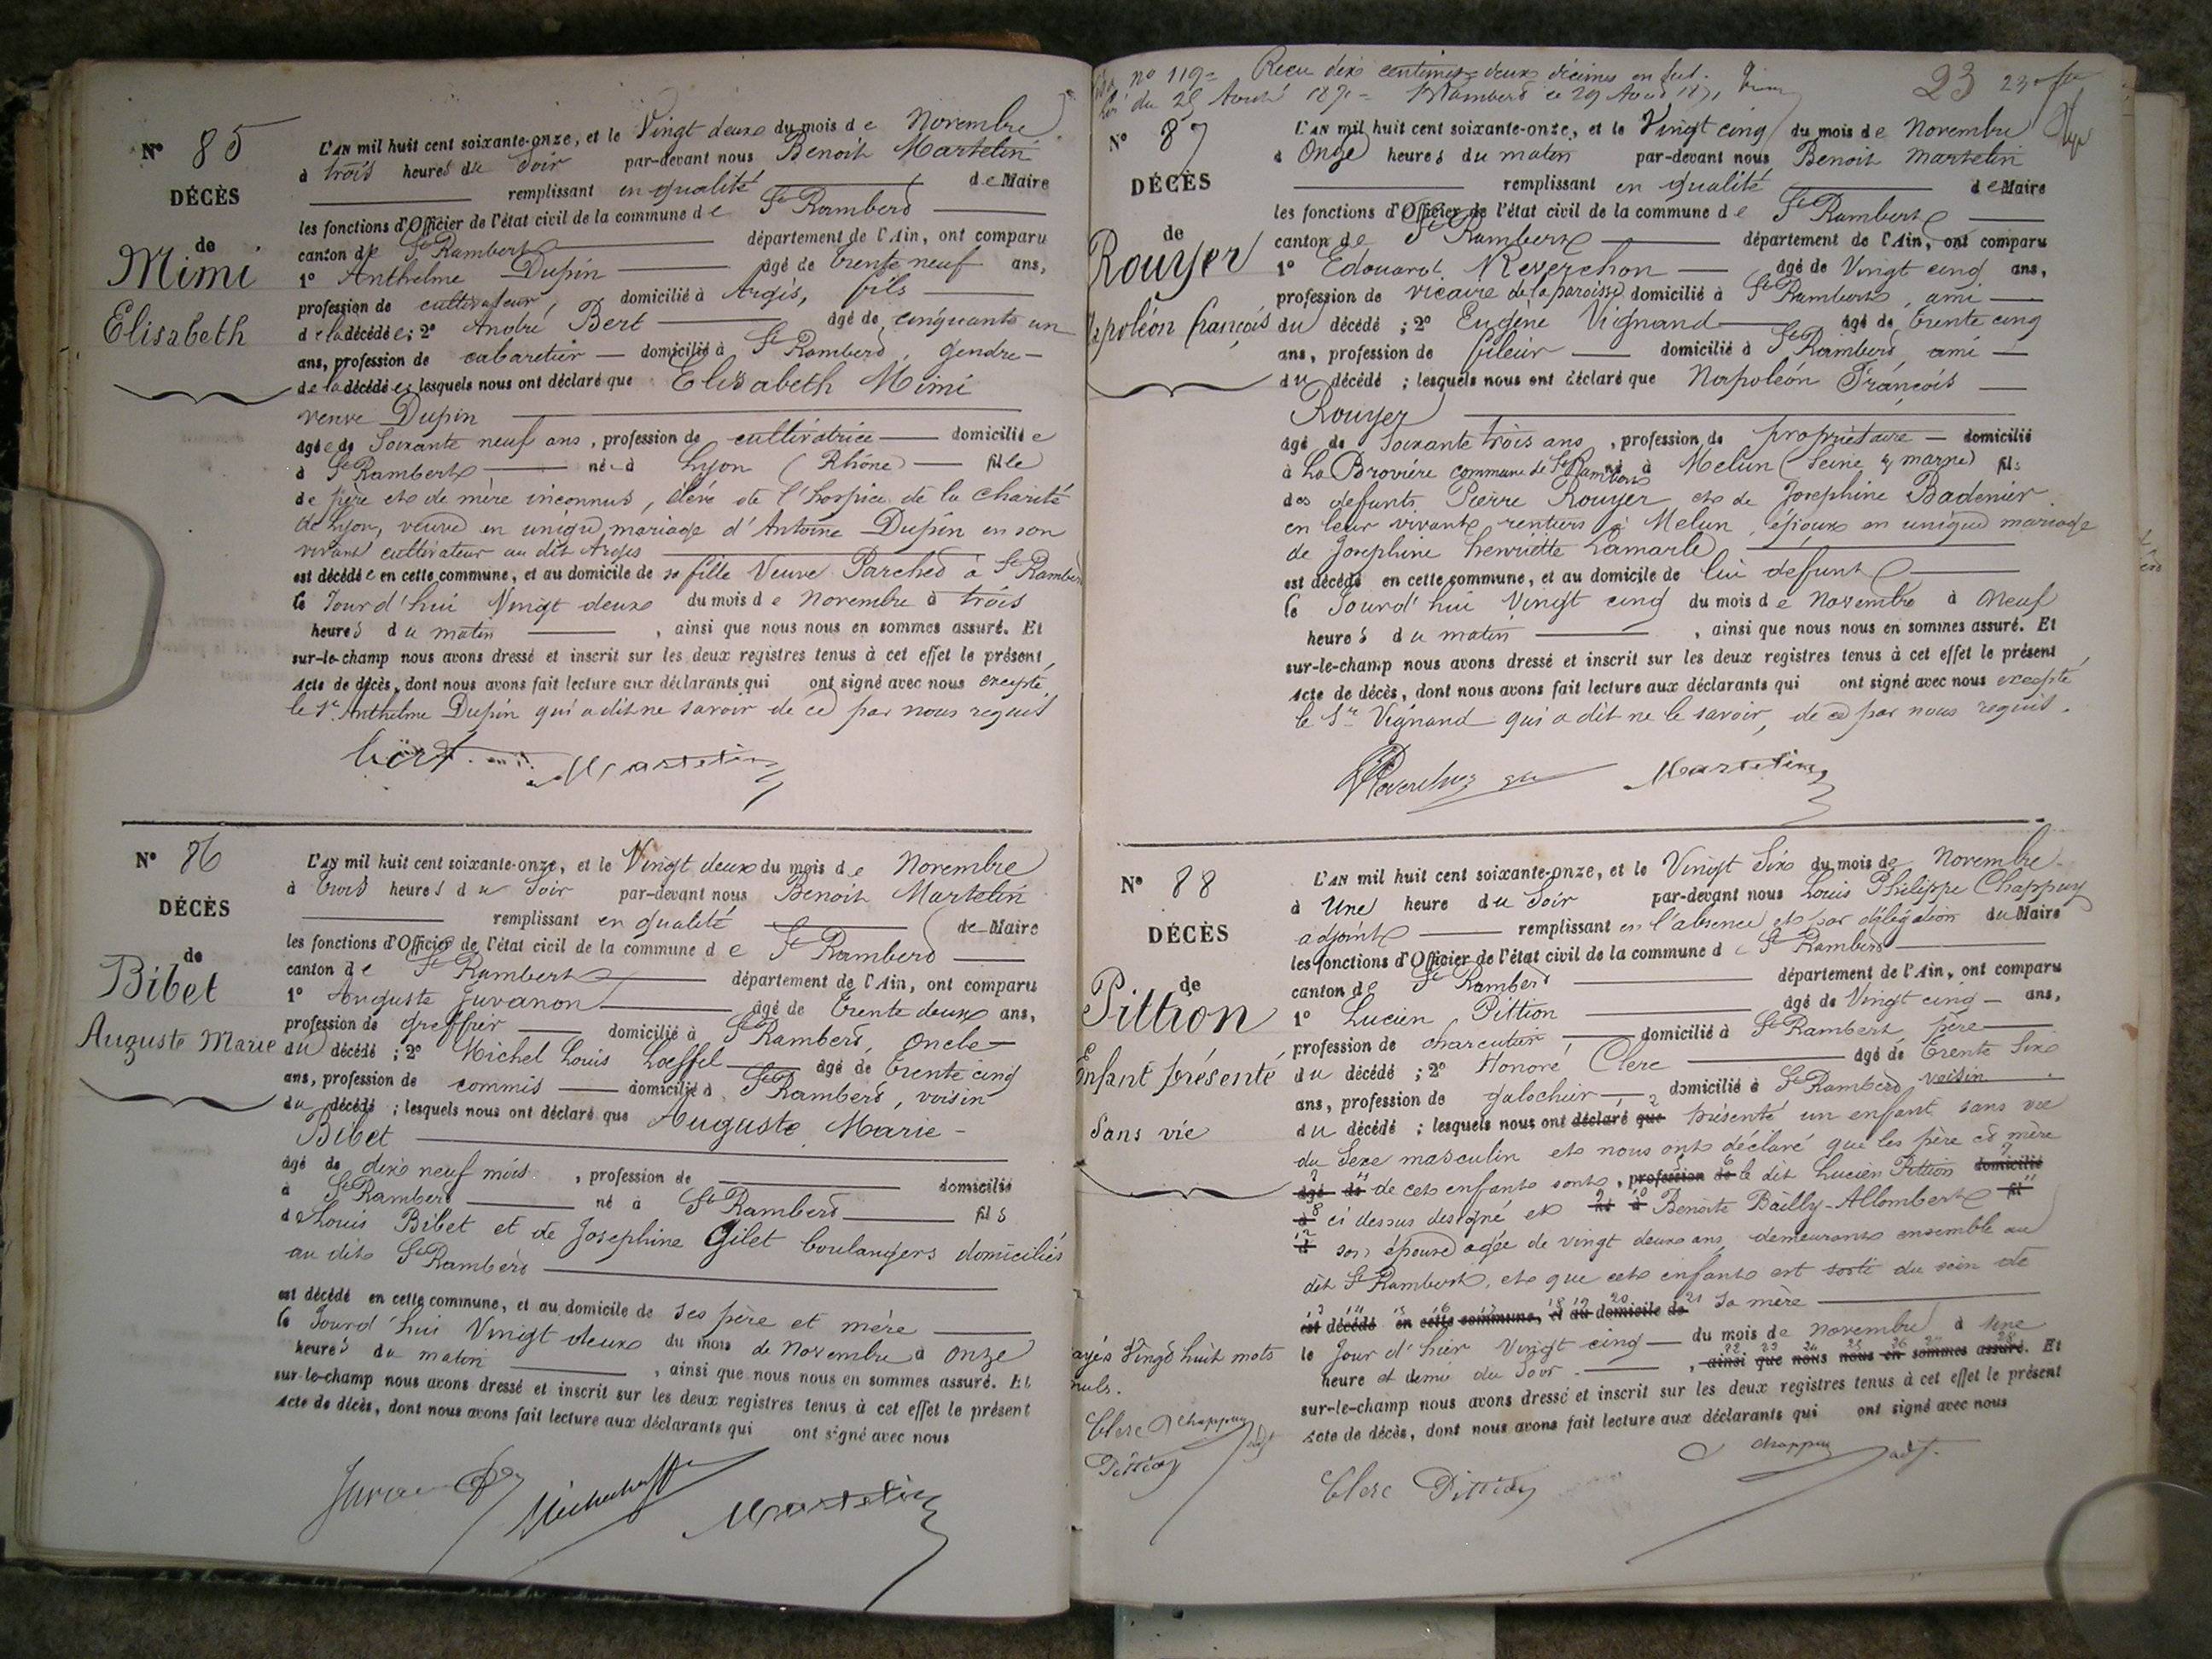 N° 85
DÉCÈS
de
Mimi
Elisabeth
L'AN mil huit cent soixante-onze, et le Vingt deux du mois de Novembre
à trois heures du Soir par-devant nous Benoit Martelin
remplissant en qualité de Maire
les fonctions d'Officier de l'état civil de la commune de St Rambert
canton de St Rambert département de l'Ain, ont comparu
1° Anthelme Dupin âgé de trente neuf ans,
profession de cultivateur, domicilié à Argis, fils
de la décédée; 2° André Bert âgé de cinquante un
ans, profession de cabaretier domicilié à St Rambert, gendre
de la décédée; lesquels nous ont déclaré que Elisabeth Mimi
veuve Dupin
âgée de Soixante neuf ans, profession de cultivatrice domiciliée
à St Rambert née à Lyon (Rhône) fille
de père et de mère inconnus, élève de l'hospice de la charité
de Lyon, veuve en unique mariage d'Antoine Dupin en son
vivant cultivateur au dit Argis
est décédée en cette commune, et au domicile de sa fille Veuve Parched à St Rambert
le Jourd'hui Vingt deux du mois de Novembre à trois
heures du matin, ainsi que nous nous en sommes assuré. Et
sur-le-champ nous avons dressé et inscrit sur les deux registres tenus à cet effet le présent
acte de décès, dont nous avons fait lecture aux déclarants qui ont signé avec nous excepté
le Sr Anthelme Dupin qui a dit ne savoir de ce par nous requis
bert Martelin
N° 86
DÉCÈS
de
Bibet
Auguste Marie
L'AN mil huit cent soixante-onze, et le Vingt deux du mois de Novembre
à trois heures du Soir par-devant nous Benoit Martelin
remplissant en qualité de Maire
les fonctions d'Officier de l'état civil de la commune de St Rambert
canton de St Rambert département de l'Ain, ont comparu
1° Auguste Juvanon âgé de trente deux ans,
profession de greffier domicilié à St Rambert, oncle
du décédé; 2° Michel Louis Loeffel âgé de trente cinq
ans, profession de commis domicilié à St Rambert, voisin
du décédé; lesquels nous ont déclaré que Auguste Marie
Bibet
âgé de dix neuf mois, profession de domicilié
à St Rambert né à St Rambert fils
de Louis Bibet et de Josephine Gilet boulangers domiciliés
au dit St Rambert
est décédé en cette commune, et au domicile de ses père et mère
le Jourd'hui Vingt deux du mois de Novembre à onze
heures du matin, ainsi que nous nous en sommes assuré. Et
sur-le-champ nous avons dressé et inscrit sur les deux registres tenus à cet effet le présent
acte de décès, dont nous avons fait lecture aux déclarants qui ont signé avec nous
Martelin
n° 119 = Recu dix centimes = deux décimes en sus.
du 29 Avril 1871 = St Rambert le 29 Avril 1871
23 23
N° 87
DÉCÈS
de
Rouyer
Napoléon françois
L'AN mil huit cent soixante-onze, et le Vingt cinq du mois de Novembre
à Onze heures du matin par-devant nous Benoit Martelin
remplissant en qualité de Maire
les fonctions d'Officier de l'état civil de la commune de St Rambert
canton de St Rambert département de l'Ain, ont comparu
1° Edouard Reverchon âgé de Vingt cinq ans,
profession de vicaire de la paroisse domicilié à St Rambert, ami
du décédé; 2° Eugène Vignand âgé de trente cinq
ans, profession de fileur domicilié à St Rambert, ami
du décédé; lesquels nous ont déclaré que Napoléon François
Rouyer
âgé de soixante trois ans, profession de propriétaire domicilié
à La Brovière commune de St Rambert né à Melun (Seine & marne) fils
des defunts Pierre Rouyer et de Josephine Badenier
en leur vivant rentiers à Melun, époux en unique mariage
de Josephine henriette Lamarle
est décédé en cette commune, et au domicile de lui defunt
le Jourd'hui Vingt cinq du mois de Novembre à neuf
heures du matin, ainsi que nous nous en sommes assuré. Et
sur-le-champ nous avons dressé et inscrit sur les deux registres tenus à cet effet le présent
acte de décès, dont nous avons fait lecture aux déclarants qui ont signé avec nous excepté
le Sr Vignand qui a dit ne le savoir, de ce par nous requis.
Martelin
N° 88
DÉCÈS
de
Pittion
Enfant présenté
Sans vie
L'AN mil huit cent soixante-onze, et le Vingt Six du mois de Novembre
à Une heure du Soir par-devant nous Louis Philippe Chappuy
adjoint remplissant en l'absence et par délégation du Maire
les fonctions d'Officier de l'état civil de la commune de St Rambert
canton de St Rambert département de l'Ain, ont comparu
1° Lucien Pittion âgé de Vingt cinq ans,
profession de charcutier domicilié à St Rambert, père
du décédé; 2° Honoré Clerc âgé de trente Six
ans, profession de galochier domicilié à St Rambert, voisin
du décédé; lesquels nous ont déclaré que présenté un enfant sans vie
du Sexe masculin et nous ont déclaré que les père et mère
âgé de de cet enfant sont, profession de le dit Lucien Pittion domicilié
à ci dessus designé et né à Benoite Bailly-Allombert fil
d son épouse agée de vingt deux ans, demeurant ensemble au
dit St Rambert, et que cet enfant est sorti du sein de
est décédé en cette commune, et au domicile de sa mère
le Jour d'hier Vingt cinq du mois de Novembre à Une
heure et demie du Soir, ainsi que nous nous en sommes assuré. Et
sur-le-champ nous avons dressé et inscrit sur les deux registres tenus à cet effet le présent
acte de décès, dont nous avons fait lecture aux déclarants qui ont signé avec nous
ayés Vingt huit mots
nuls.
Clerc Chappuy adjt
Pittion
Clerc Pittion Chappuy adj.